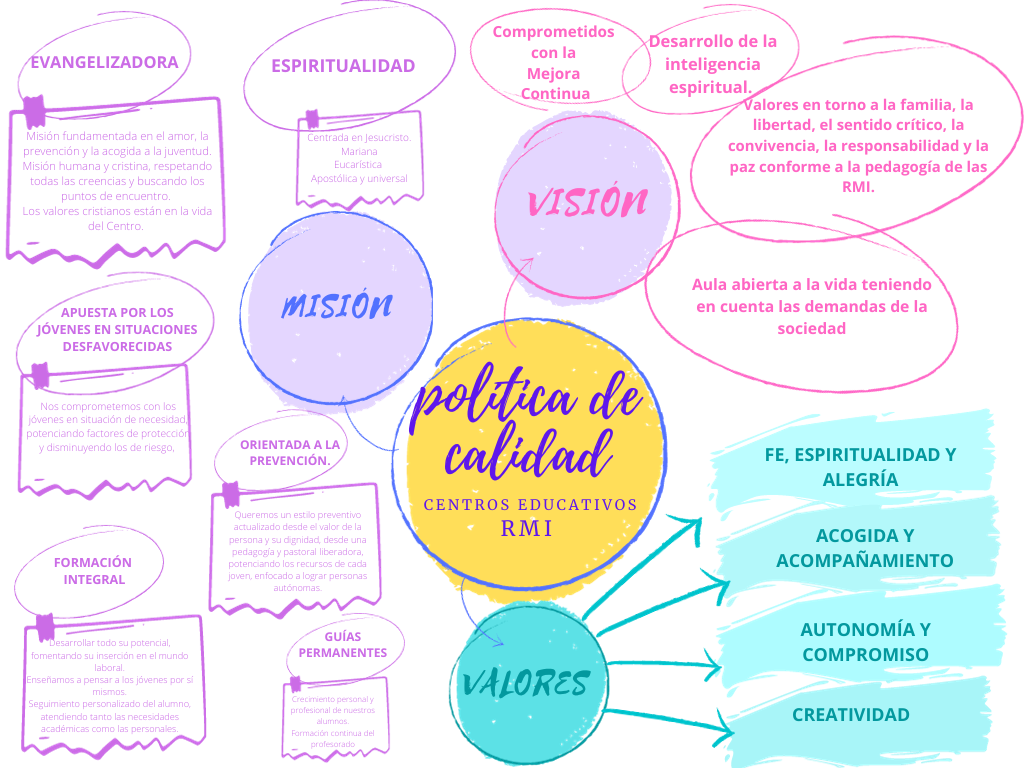 EVANGELIZADORA
Misión fundamentada en el amor, la
prevención y la acogida a la juventud.
Misión humana y cristina, respetando
todas las creencias y buscando los
puntos de encuentro.
Los valores cristianos están en la vida
del Centro.
ESPIRITUALIDAD
Centrada en Jesucristo.
Mariana
Eucarística
Apostólica y universal
Comprometidos
con la
Mejora
Continua
Desarrollo de la
inteligencia
espiritual.
Valores en torno a la familia, la
libertad, el sentido crítico, la
convivencia, la responsabilidad y la
paz conforme a la pedagogía de las
RMI.
VISIÓN
Aula abierta a la vida teniendo
en cuenta las demandas de la
sociedad
MISIÓN
APUESTA POR LOS
JÓVENES EN SITUACIONES
DESFAVORECIDAS
Nos comprometemos con los
jóvenes en situación de necesidad,
potenciando factores de protección
y disminuyendo los de riesgo,
ORIENTADA A LA
PREVENCIÓN.
Queremos un estilo preventivo
actualizado desde el valor de la
persona y su dignidad, desde una
pedagogía y pastoral liberadora,
potenciando los recursos de cada
joven, enfocado a lograr personas
autónomas.
política de
calidad
CENTROS EDUCATIVOS
RMI
FORMACIÓN
INTEGRAL
Desarrollar todo su potencial,
fomentando su inserción en el mundo
laboral.
Enseñamos a pensar a los jóvenes por sí
mismos.
Seguimiento personalizado del alumno,
atendiendo tanto las necesidades
académicas como las personales.
GUÍAS
PERMANENTES
Crecimiento personal y
profesional de nuestros
alumnos.
Formación continua del
profesorado
VALORES
FE, ESPIRITUALIDAD Y
ALEGRÍA
ACOGIDA Y
ACOMPAÑAMIENTO
AUTONOMÍA Y
COMPROMISO
CREATIVIDAD